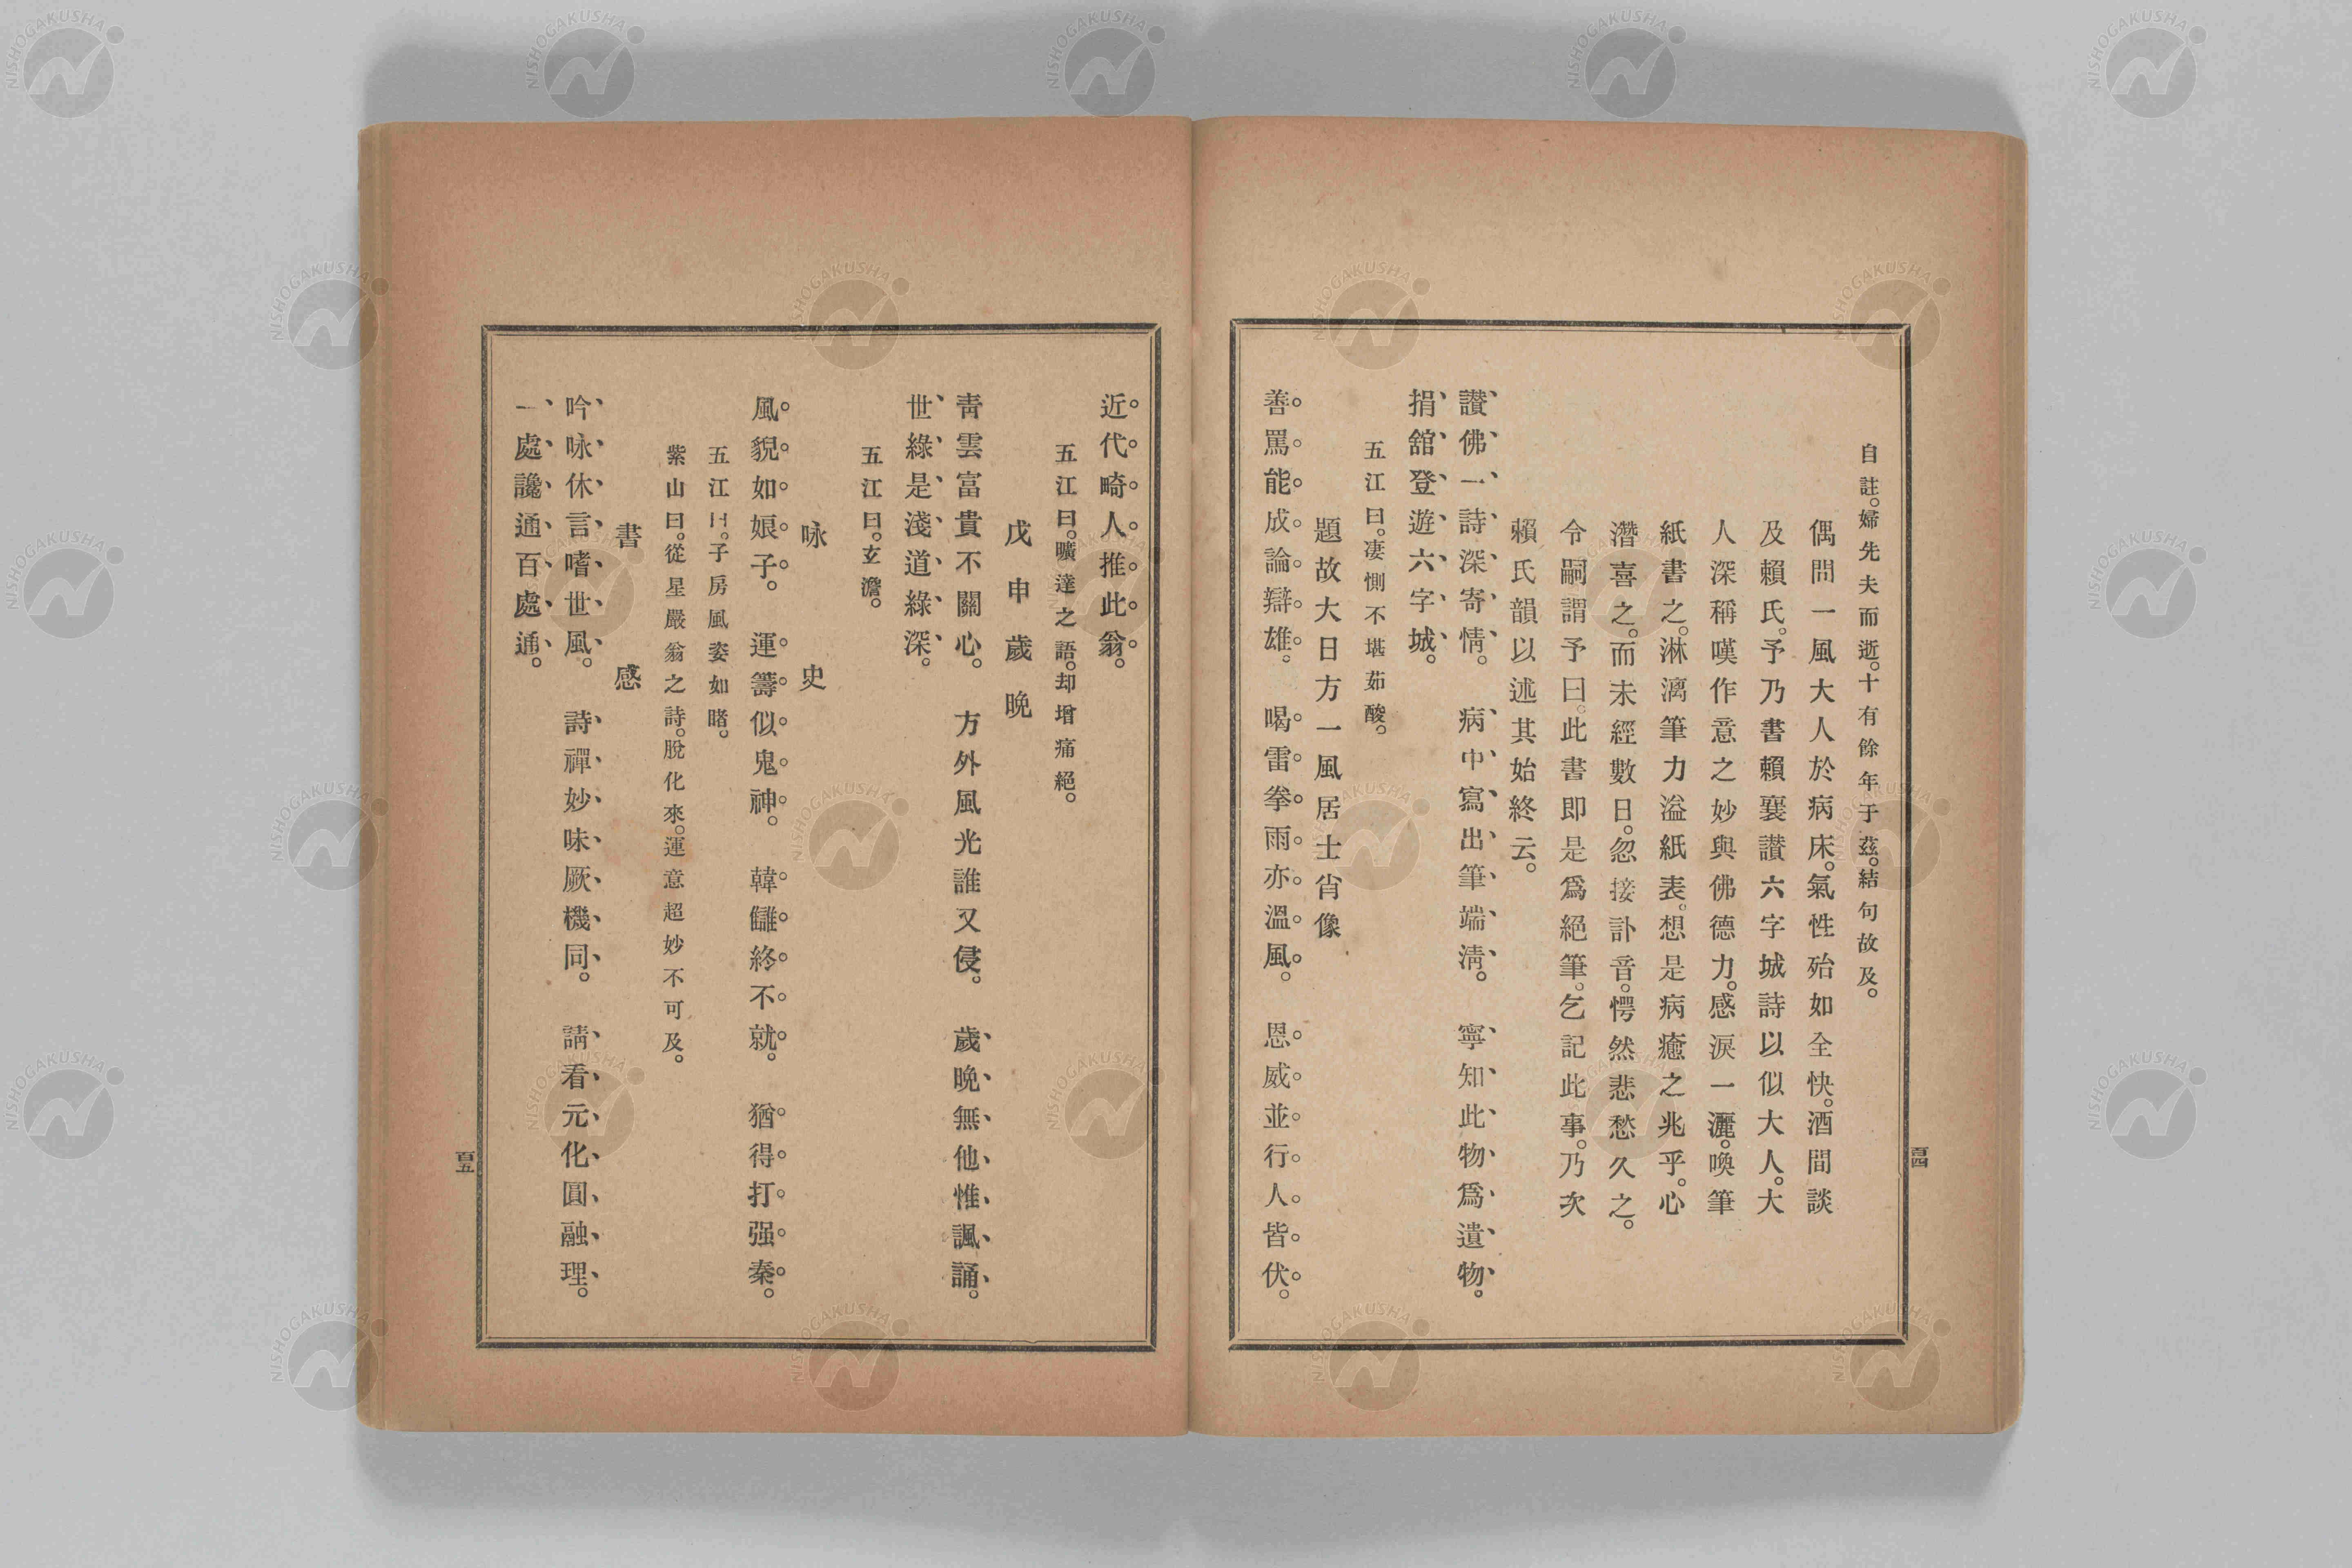 自註。婦先夫而逝。十有餘年于茲。結句故及。
偶問一風大人於病床。氣性殆如全快。酒間談
及賴氏。予乃書賴襄讃六字城詩以似大人。大
人深稱嘆作意之妙與佛德力。感淚一灑。喚筆
紙書之。淋漓筆力溢紙表。想是病癒之兆乎。心
濳喜之。而未經數日。忽接訃音。愕然悲愁久之。
令嗣謂予曰。此書即是爲絕筆。乞記此事。乃次
賴氏韻以述其始終云。
讃佛一詩深寄情。病中寫出筆端淸。寧知此物爲遺物。
捐舘登遊六字城。
五江曰。凄惻不堪茹酸。
題故大日方一風居士肖像
善罵能成論辯雄。喝雷拳雨亦溫風。恩威並行人皆伏。
百四
近代畸人推此翁。
五江曰。曠達之語。却增痛絕。
戊申歲晩
靑雲富貴不關心。方外風光誰又侵。歲晩無他惟諷誦。
世綠是淺道綠深。
五江曰。玄澹。
咏史
風貌如娘子。運籌似鬼神。韓讎終不就。猶得打强秦。
五江曰。子房風姿如睹。
紫山曰。從星嚴翁之詩。脫化來。運意超妙不可及。
書感
吟咏休言嗜世風。詩禪妙味厥機同。請看元化圓融理。
一處讒通百處通。
百五
NISHOGAKUSHA